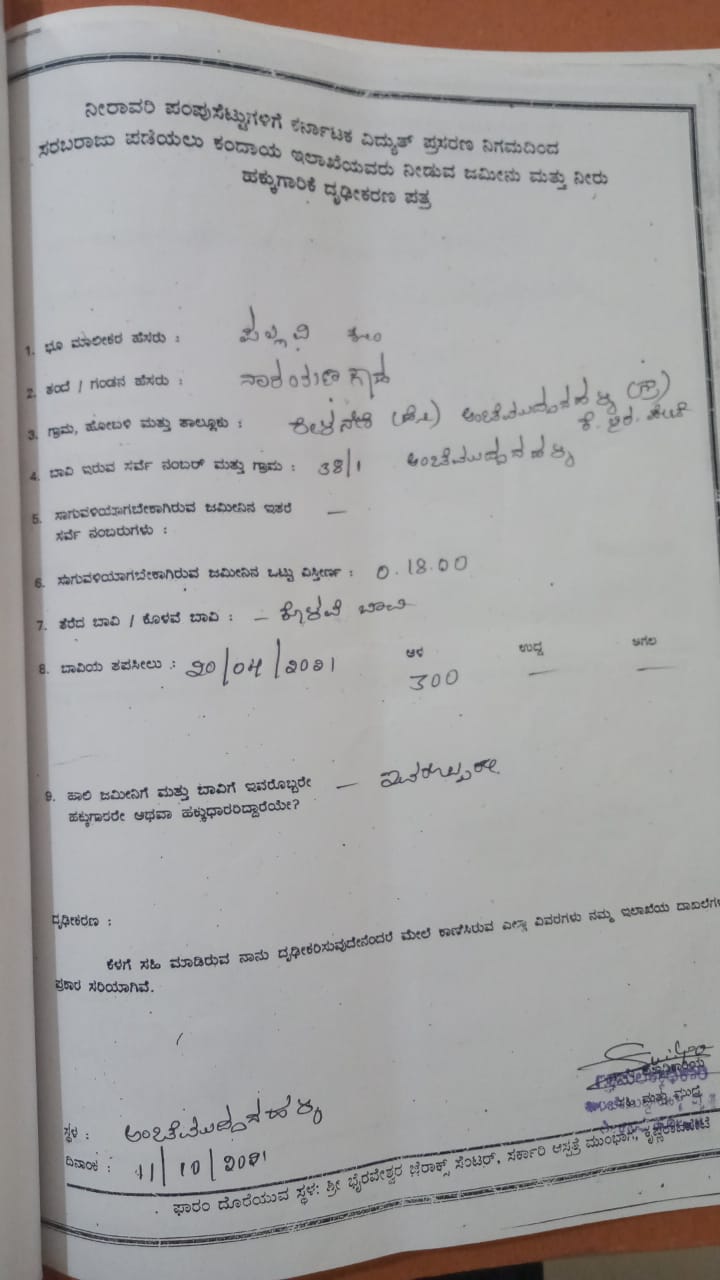 ನೀರಾವರಿ ಪಂಪುಸೆಟ್ಟುಗಳಿಗೆ ಕರ್ನಾಟಕ ವಿದ್ಯುತ್ ಪ್ರಸರಣ ನಿಗಮದಿಂದ
ಸರಬರಾಜು ಪಡೆಯಲು ಕಂದಾಯ ಇಲಾಖೆಯವರು ನೀಡುವ ಜಮೀನು ಮತ್ತು ನೀರು
ಹಕ್ಕುಗಾರಿಕೆ ದೃಢೀಕರಣ ಪತ್ರ
1. ಭೂ ಮಾಲೀಕರ ಹೆಸರು : ಪಲ್ಲವಿ ಕೋಂ
2. ತಂದೆ / ಗಂಡನ ಹೆಸರು : ನಾರಾಯಣಗೌಡ
3. ಗ್ರಾಮ, ಹೋಬಳಿ ಮತ್ತು ತಾಲ್ಲೂಕು : (ಹೋ) (ಗ್ರಾ)
ಕೆ. ಆರ. ಪೇಟೆ
4. ಬಾವಿ ಇರುವ ಸರ್ವೆ ನಂಬರ್ ಮತ್ತು ಗ್ರಾಮ : 38/1
5. ಸಾಗುವಳಿಯಾಗಬೇಕಾಗಿರುವ ಜಮೀನಿನ ಇತರೆ —
ಸರ್ವೆ ನಂಬರುಗಳು :
6. ಸಾಗುವಳಿಯಾಗಬೇಕಾಗಿರುವ ಜಮೀನಿನ ಒಟ್ಟು ವಿಸ್ತೀರ್ಣ : 0.18.00
7. ತೆರೆದ ಬಾವಿ / ಕೊಳವೆ ಬಾವಿ : – ಕೊಳವೆ ಬಾವಿ
ಆಳ ಉದ್ದ ಅಗಲ
8. ಬಾವಿಯ ತಪಸೀಲು : 20/04/2021 300 — —
9. ಹಾಲಿ ಜಮೀನಿಗೆ ಮತ್ತು ಬಾವಿಗೆ ಇವರೊಬ್ಬರೇ — ಇವರೊಬ್ಬರೇ
ಹಕ್ಕುಗಾರರೇ ಅಥವಾ ಹಕ್ಕುಧಾರರಿದ್ದಾರೆಯೇ?
ದೃಢೀಕರಣ :
ಕೆಳಗೆ ಸಹಿ ಮಾಡಿರುವ ನಾನು ದೃಢೀಕರಿಸುವುದೇನೆಂದರೆ ಮೇಲೆ ಕಾಣಿಸಿರುವ ಎಲ್ಲಾ ವಿವರಗಳು ನಮ್ಮ ಇಲಾಖೆಯ ದಾಖಲೆಗಳ
ಪ್ರಕಾರ ಸರಿಯಾಗಿವೆ.
ಸಹಿ ಮತ್ತು ಮುದ್ರೆ
ಸ್ಥಳ :
ದಿನಾಂಕ : 11/10/2021
ಫಾರಂ ದೊರೆಯುವ ಸ್ಥಳ: ಶ್ರೀ ಭೈರವೇಶ್ವರ ಜೆರಾಕ್ಸ್ ಸೆಂಟರ್, ಸರ್ಕಾರಿ ಆಸ್ಪತ್ರೆ ಮುಂಭಾಗ, ಕೃಷ್ಣರಾಜಪೇಟೆ